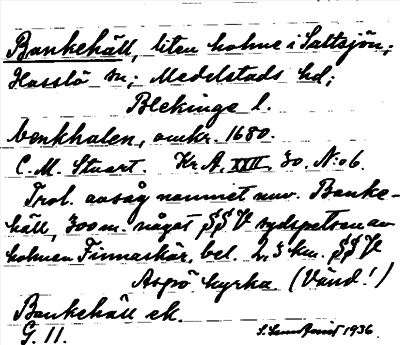 Bankehäll, liten holme i Saltsjön;
Hasslö sn; Medelstads hd;
Blekinge l.
benkhalen, omkr. 1680.
C. M. Stuart. Kr. A. XXII, 30. N:o 6.
Trol. avsåg namnet nuv. Banke-
häll, 300 m. något SSV sydspetsen av
holmen Finnaskär, bel. 2,3 km. SSV
Aspö kyrka (Vänd!)
Bankehäll ek.
G. 11.
1936.